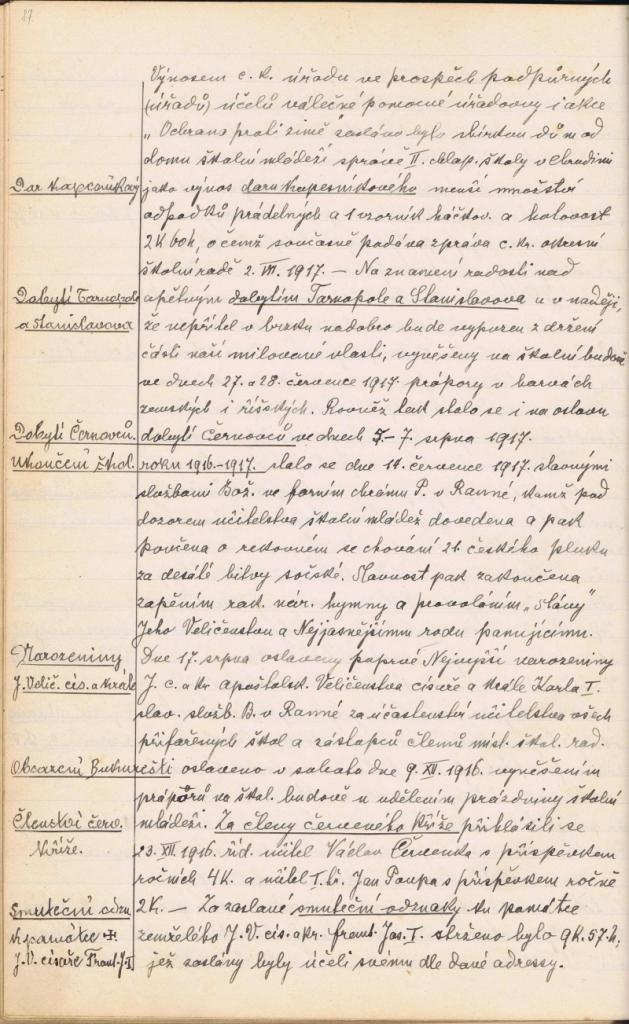 87
Výnosem c. k. úřadu ve prospěch podpůrných
(úřadů) účelů válečné pomocné úřadovny i akce
„Ochrana proti zimě" zaslána byla sbírkou dům od
domu školní mládeží správě II. chlap. školy v Chrudimi
Dar kapesníkový jako výnos daru kapesníkového menší množství
odpadků prádelných a 1 vzorník háčkov. a hotovost
2K 60h, o čemž současně podává zpráva c. kr. okresní
školní radě 2. VII. 1917. — Na znamení radosti nad
Dobytí Tarnopole opětným dobytím Tarnopole a Stanislavova a v naději,
a Stanislavova že nepřítel v brzku nadobro bude vypuzen z držení
části naší milované vlasti, vyvěšeny na školní budově
ve dnech 27. a 28. července 1917 prápory v barvách
zemských i říšských. Rovněž tak stalo se i na oslavu
Dobytí Černovců. dobytí Černovců ve dnech 5.–7. srpna 1917.
Ukončení škol. roku 1916.–1917. stalo se dne 14. července 1917. slavnými
službami Bož. ve farním chrámu P. v Ranné, kamž pod
dozorem učitelstva školní mládež dovedena a pak
poučena o rekovném se chování 21. českého pluku
za desáté bitvy sočské. Slavnost pak zakončena
zapěním rak. nár. hymny a provoláním „Slávy"
Jeho Veličenstvu a Nejjasnějšímu rodu panujícímu.
Narozeniny Dne 17. srpna oslaveny poprvé Nejvyšší narozeniny
J. Velič. cís. a krále J. c. a kr. apoštolsk. Veličenstva císaře a krále Karla I.
slav. služb. B. v Ranné za účastenství učitelstva všech
přifařených škol a zástupců členů míst. škol. rad.
Obsazení Bukurešti oslaveno v sobotu dne 9. XII. 1916. vyvěšením
práporů na škol. budově a udělením prázdniny školní
Členství červ. mládeži. Za členy červeného kříže přihlásili se
Kříže. 23. XII. 1916. říd. učitel Václav Červenka s příspěvkem
ročních 4K. a učitel I. tř. Jan Poupa s příspěvkem ročně
Smuteční odzn. 2K. — Za zaslané smuteční odznaky ku památce
k památce ✝ zemřelého J. V. cís. a kr. Frant. Jos. I. strženo bylo 9K. 57h,
J. V. císaře Frant. J. I. jež zaslány byly účeli svému dle dané adressy.